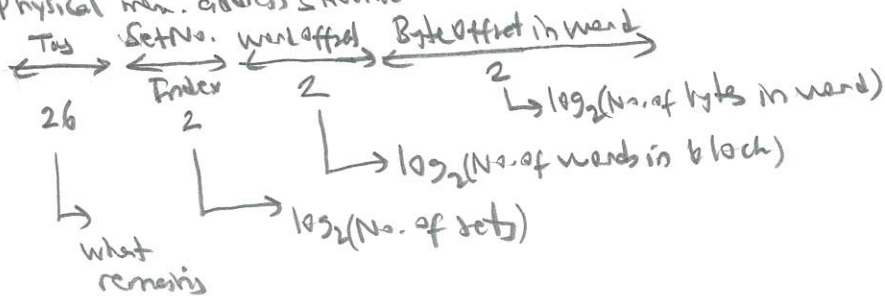 Physical mem. address
Tag Set No. word offset Byte offset in word
Index
26 2 2 2
log₂(No. of bytes in word)
log₂(No. of words in block)
log₂(No. of sets)
what
remains